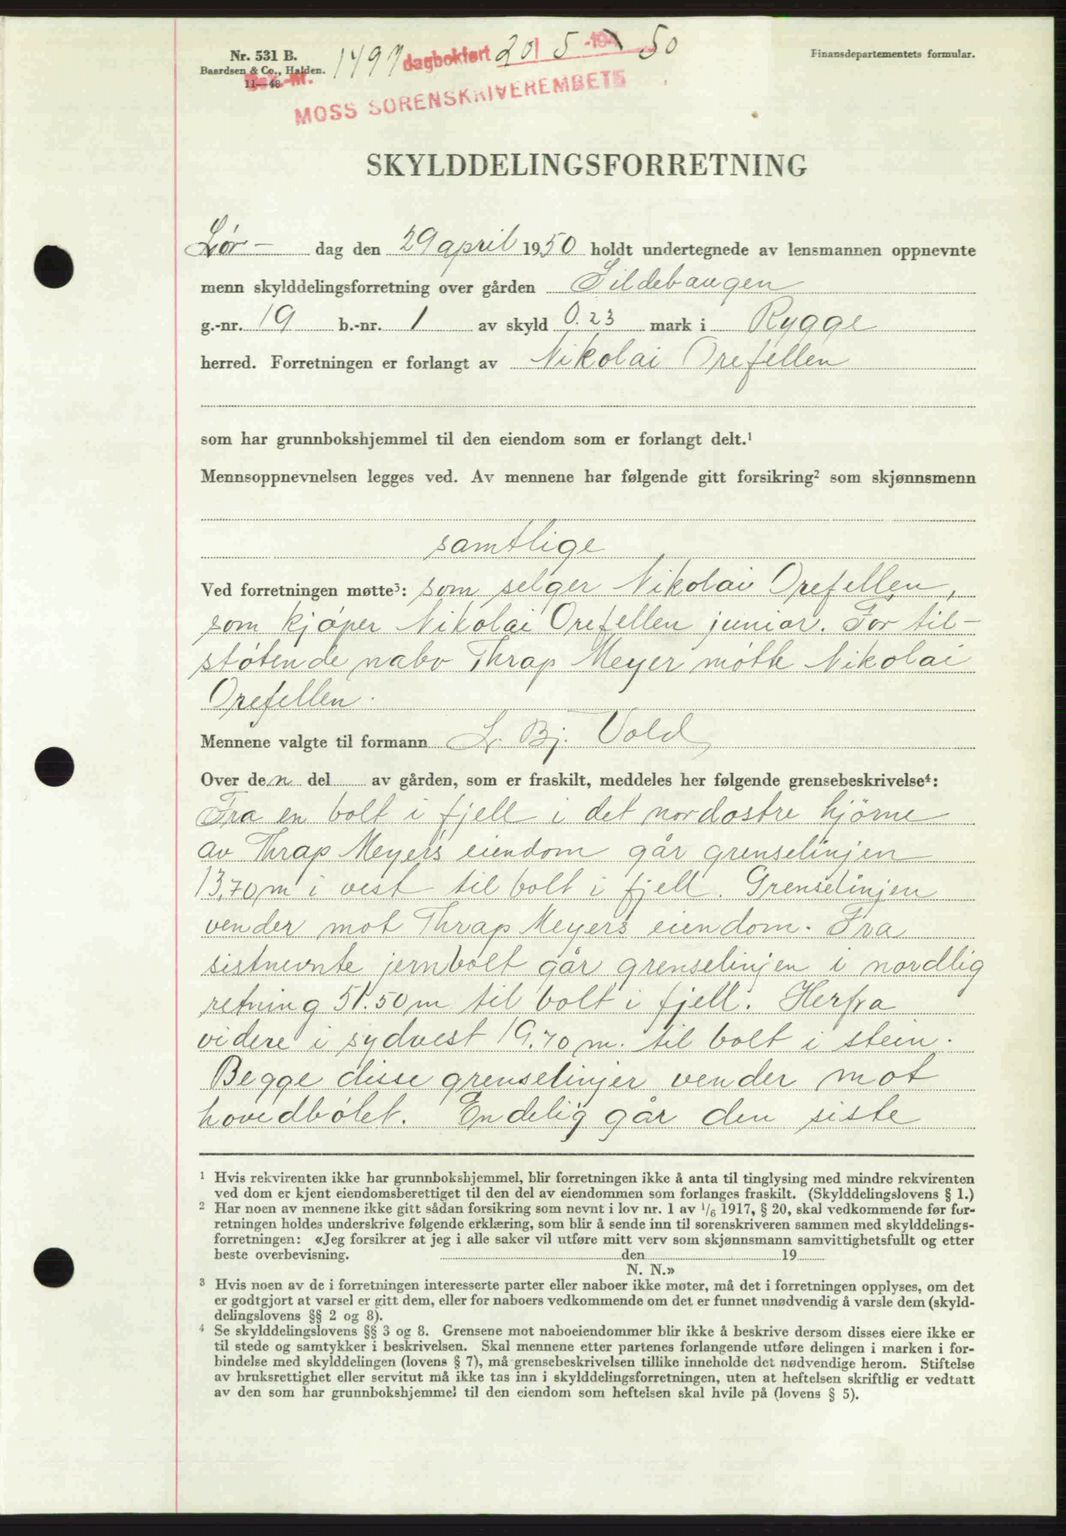 Nr. 531 B.
Baardsen & Co., Halden.
11—48
1497 dagbokført 20/5 -19 50
MOSS SORENSKRIVEREMBETE
Finansdepartementets formular.
SKYLDDELINGSFORRETNING
Lør- dag den 29 april 1950 holdt undertegnede av lensmannen oppnevnte
menn skylddelingsforretning over gården Sildebaugen
g.-nr. 19 b.-nr. 1 av skyld 0.23 mark i Rygge
herred. Forretningen er forlangt av Nikolai Orefellen
som har grunnbokshjemmel til den eiendom som er forlangt delt.¹
Mennsoppnevnelsen legges ved. Av mennene har følgende gitt forsikring² som skjønnsmenn
samtlige
Ved forretningen møtte³: som selger Nikolai Orefellen,
som kjøper Nikolai Orefellen junior. For til-
støtende nabo Thrap Meyer møtte Nikolai
Orefellen.
Mennene valgte til formann L. Bj. Vold
Over den del av gården, som er fraskilt, meddeles her følgende grensebeskrivelse⁴:
Fra en bolt i fjell i det nordøstre hjørne
av Thrap Meyers eiendom går grenselinjen
13,70 m i vest til bolt i fjell. Grenselinjen
vender mot Thrap Meyers eiendom. Fra
sistnevnte jernbolt går grenselinjen i nordlig
retning 51.50 m til bolt i fjell. Herfra
videre i sydvest 19.70 m. til bolt i stein.
Begge disse grenselinjer vender mot
hovedbølet. Endelig går den siste
¹ Hvis rekvirenten ikke har grunnbokshjemmel, blir forretningen ikke å anta til tinglysing med mindre rekvirenten
ved dom er kjent eiendomsberettiget til den del av eiendommen som forlanges fraskilt. (Skylddelingslovens § 1.)
² Har noen av mennene ikke gitt sådan forsikring som nevnt i lov nr. 1 av 1/6 1917, § 20, skal vedkommende før for-
retningen holdes underskrive følgende erklæring, som blir å sende inn til sorenskriveren sammen med skylddelings-
forretningen: «Jeg forsikrer at jeg i alle saker vil utføre mitt verv som skjønnsmann samvittighetsfullt og etter
beste overbevisning. den 19
N. N.»
³ Hvis noen av de i forretningen interesserte parter eller naboer ikke møter, må det i forretningen opplyses, om det
er godtgjort at varsel er gitt dem, eller for naboers vedkommende om det er funnet unødvendig å varsle dem (skyld-
delingslovens §§ 2 og 8).
⁴ Se skylddelingslovens §§ 3 og 8. Grensene mot naboeiendommer blir ikke å beskrive dersom disses eiere ikke er
til stede og samtykker i beskrivelsen. Skal mennene etter partenes forlangende utføre delingen i marken i for-
bindelse med skylddelingen (lovens § 7), må grensebeskrivelsen tillike inneholde det nødvendige herom. Stiftelse
av bruksrettighet eller servitut må ikke tas inn i skylddelingsforretningen, uten at heftelsen skriftlig er vedtatt
av den som har grunnbokshjemmel til den eiendom som heftelsen skal hvile på (lovens § 5).